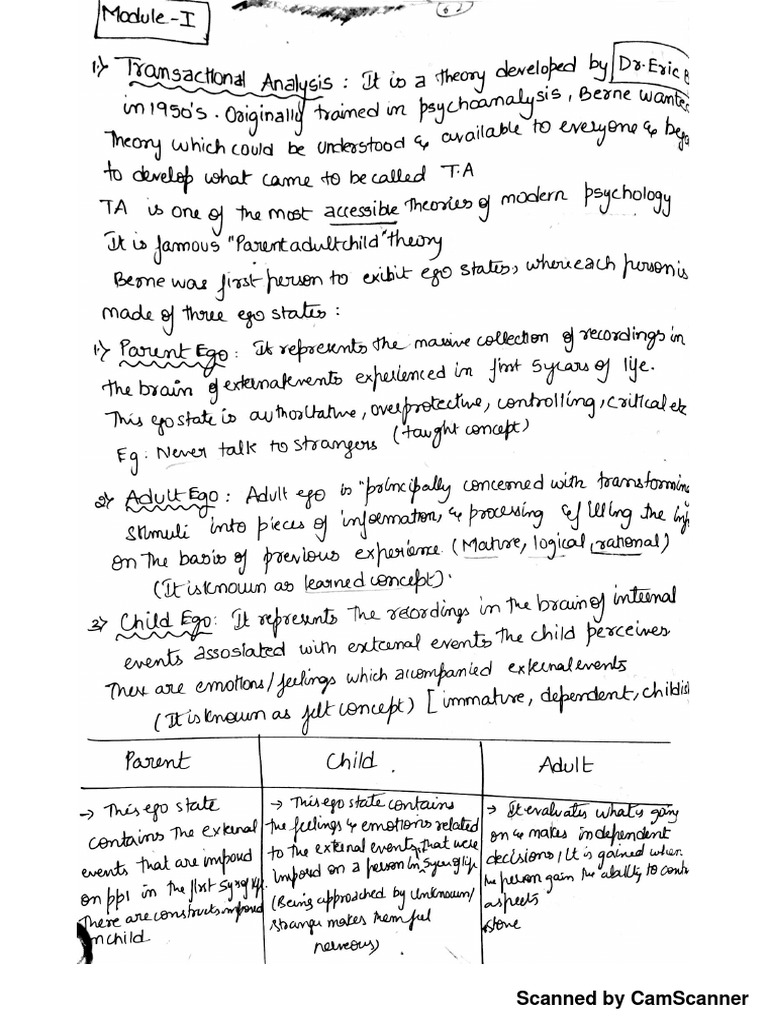 Module-I
62
1.) Transactional Analysis : It is a theory developed by Dr. Eric B
in 1950's. Originally trained in psychoanalysis, Berne wante
Theory which could be understood & available to everyone & bega
to develop what came to be called T.A
TA is one of the most accessible Theories of modern psychology
It is famous "Parent adult child" theory
Berne was first person to exibit ego states, where each person is
made of three ego states :
1.) Parent Ego : It represents the massive collection of recordings in
the brain of external events experienced in first 5 years of life.
This ego state is authoritative, overprotective, controlling, critical etc
Eg : Never talk to strangers (taught concept)
2) Adult Ego : Adult ego is "principally concerned with transformin
stimuli into pieces of information, & processing & filling the inf
on the basis of previous experience (Mature, logical, rational)
(It is known as learned concept).
3) Child Ego : It represents the recordings in the brain of internal
events assosiated with external events the child perceives
There are emotions/feelings which accompanied external events
(It is known as felt concept) [immature, dependent, childis
Parent
→ This ego state
contains the external
events that are imposed
on ppl in the first 5 yrs of life.
There are constructs imposed
on child
Child .
→ This ego state contains
the feelings & emotions related
to the external events, that were
imposed on a person in 5 yrs of life
(Being approached by unknown/
stranger makes them feel
nervous)
Adult
→ It evaluates what is going
on & makes independent
decisions, It is gained when
the person gain the ability to contr
aspects
Scanned by CamScanner